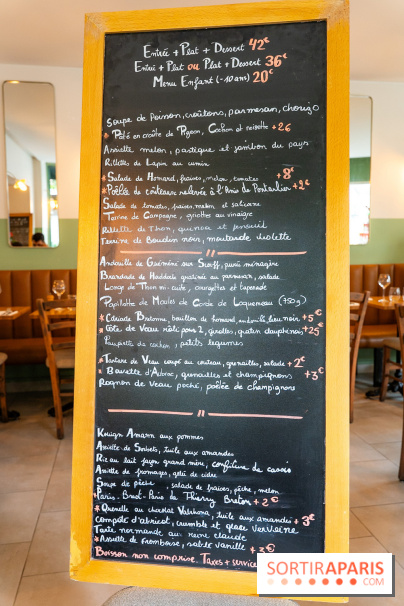 Entrée + Plat + Dessert 42€
Entrée + Plat ou Plat + Dessert 36€
Menu Enfant (-10 ans) 20€
Soupe de Poisson, croûtons, parmesan, chorizo
* Pâté en croûte de Pigeon, Cochon et noisette +2€
Assiette melon, pastèque et jambon du pays
Rillettes de Lapin au cumin
* Salade de Homard, fraises, melon, tomates +8€
* Poêlée de couteaux relevée à l'Anis de Pontarlier +2€
Salade de tomates, fraises, melon et salicorne
Terrine de Campagne, griottes au vinaigre
Rillette de Thon, quinoa et fenouil
Terrine de Boudin noir, moutarde violette
Andouille de Guémené sur Skeiff, purée ménagère
Brandade de Haddock gratinée au parmesan, salade
Longe de Thon mi-cuite, courgettes et tapenade
Papillote de Moules de Corde de Locquemeau (750g)
* Côte de Veau rôti pour 2, girolles, gratin dauphinois +25€
petits legumes
* Tartare de Veau coupé au couteau, grenailles, salade +2€
* Bavette d'Aubrac, grenailles et champignons +3€
Rognon de Veau poché, poêlée de champignons
Kouign Amann aux pommes
Assiette de Sorbets, tuile aux amandes
Riz au lait façon grand mère, confiture de cassis
Assiette de fromages, gelée de cidre
Soupe de pêche, salade de fraises, pêche, melon
* Paris-Brest-Paris de Thierry Breton +2€
* Quenelle au chocolat Valrhona, tuile aux amandes +3€
Compôte d'abricot, crumble et glace verveine
Tarte normande aux reine claude
* Assiette de Framboise, sablé vanille +3€
Boisson non comprise. Taxes + service
SORTIRAPARIS
.COM